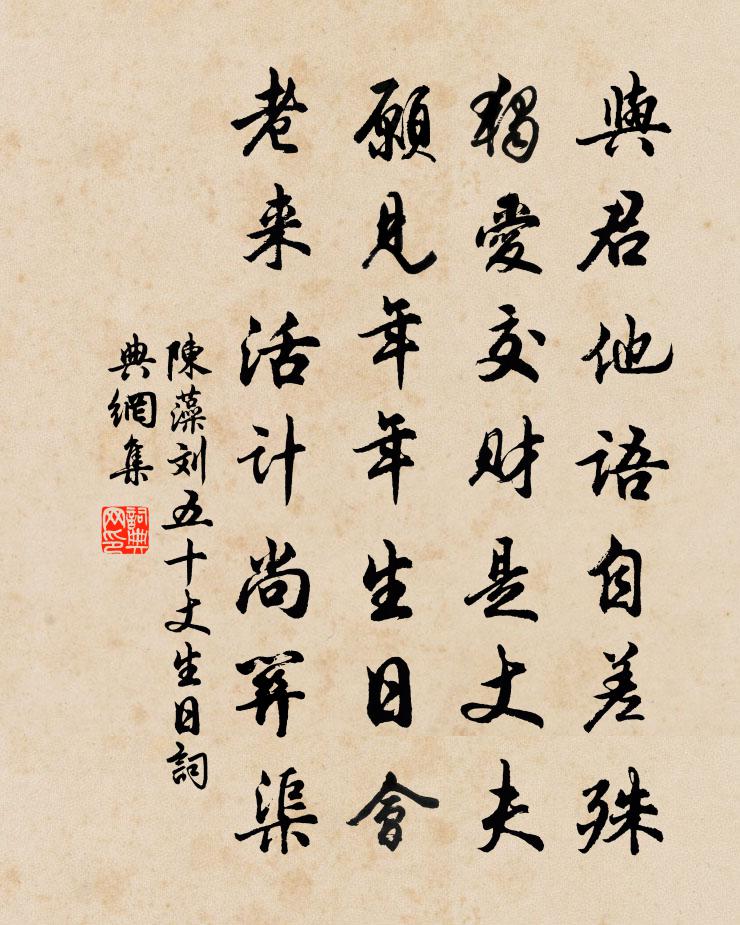 與君他語自差殊
獨愛交財是丈夫
願見年年生日會
老来活计尚算渠
陳藻刘五十丈生日詞
典網集
詞典
网印